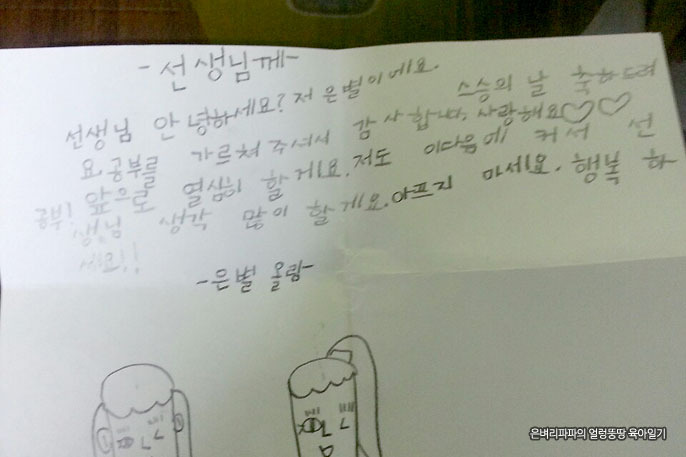 -선생님께-
선생님 안녕하세요? 저 은별이에요. 스승의 날 축하드려
요. 공부를 가르쳐 주셔서 감사합니다, 사랑해요♡♡
공부! 앞으로 열심히 할게요. 저도 이다음에 커서 선
생님 생각 많이 할게요. 아프지 마세요. 행복 하
세요!!
-은별 올림-
은벼리파파의 얼렁뚱땅 육아일기